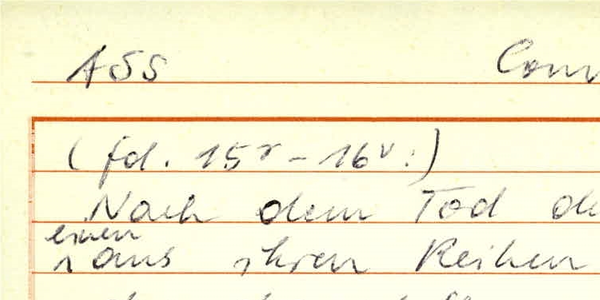 ASS Conv
(fol. 15r - 16v:)
Nach dem Tod de
einen
aus ihren Reihen